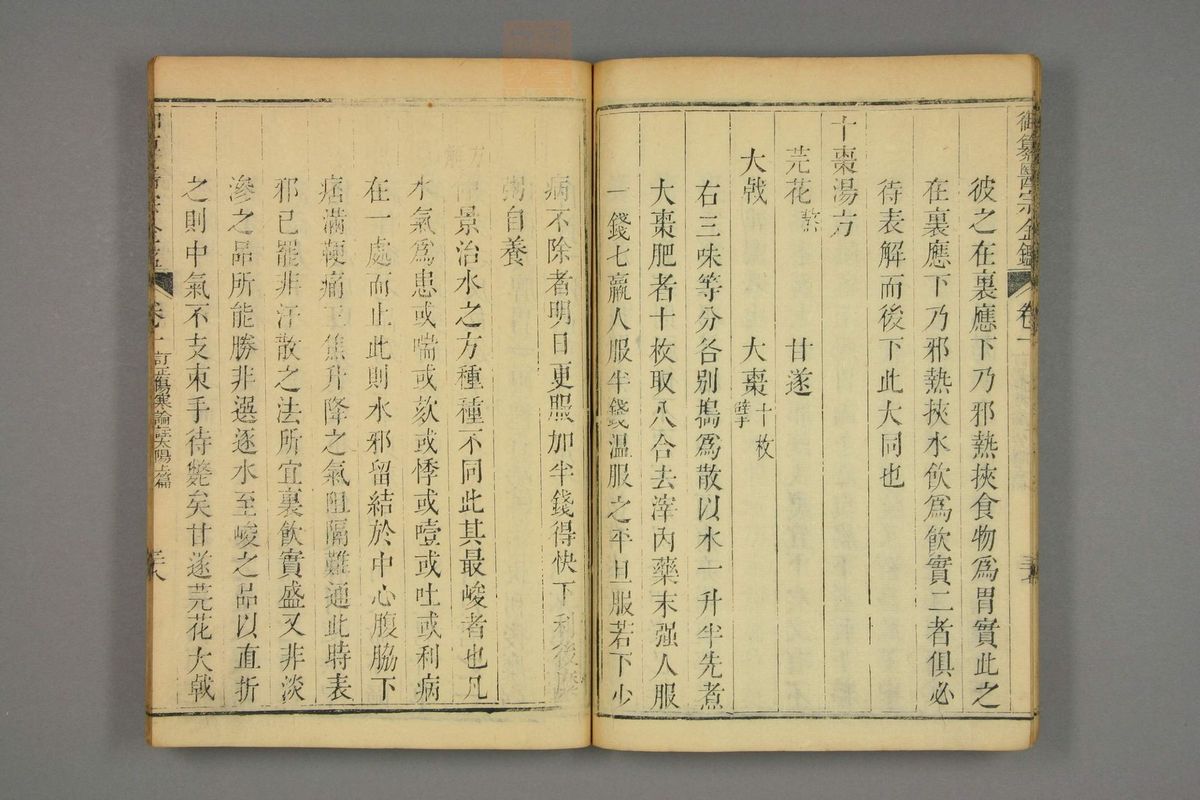 御纂醫宗金鑑 卷一
彼之在裏應下乃邪熱挾食物爲胃實此之
在裏應下乃邪熱挾水飲爲飲實二者俱必
待表解而後下此大同也
十棗湯方
芫花熬 甘遂
大戟 大棗十枚擘
右三味等分各別搗爲散以水一升半先煮
大棗肥者十枚取八合去滓內藥末强人服
一錢七羸人服半錢溫服之平旦服若下少
病不除者明日更服加半錢得快下利後糜
粥自養
方解
仲景治水之方種種不同此其最峻者也凡
水氣爲患或喘或欬或悸或噎或吐或利病
在一處而止此則水邪留結於中心腹脇下
痞滿鞕痛三焦升降之氣阻隔難通此時表
邪已罷非汗散之法所宜裏飲實盛又非淡
滲之品所能勝非選逐水至峻之品以直折
之則中氣不支束手待斃矣甘遂芫花大戟
卷一 訂正傷寒論註太陽上篇 三十八